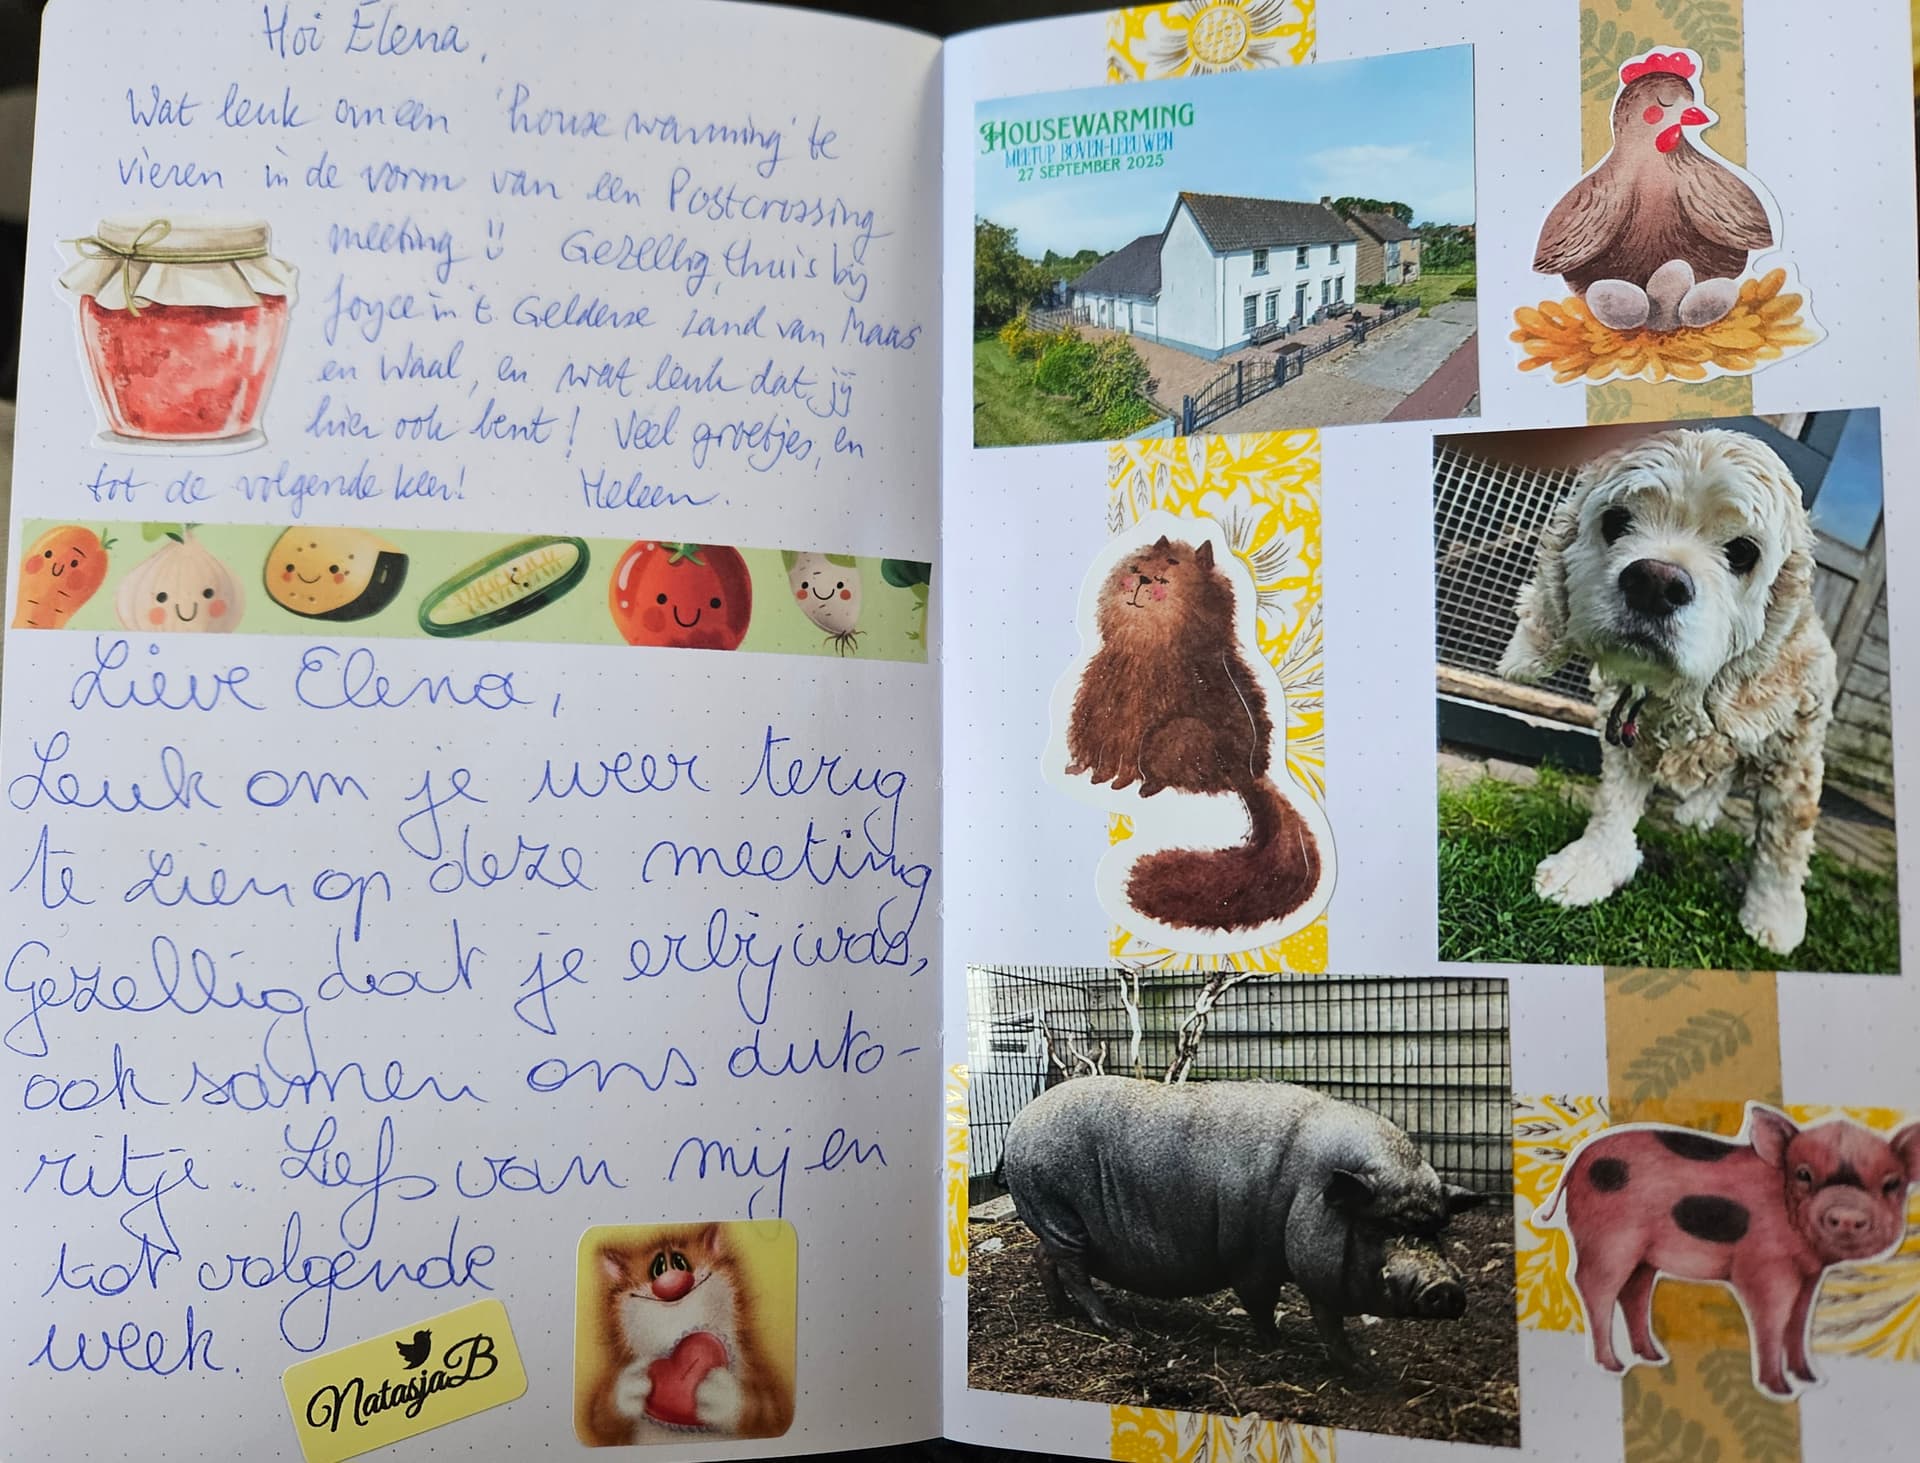 Hoi Elena,
Wat leuk om een 'house warming' te
vieren in de vorm van een Postcrossing
meeting !! Gezellig, thuis bij
Joyce in 't Gelderse Land van Maas
en Waal, en wat leuk dat jij
hier ook bent! Veel groetjes, en
tot de volgende keer! Heleen.
Lieve Elena,
Leuk om je weer terug
te zien op deze meeting
Gezellig dat je erbij was,
ook samen ons auto-
ritje. Liefs van mij en
tot volgende
week.
NatasjaB
HOUSEWARMING
MEETUP BOVEN-LEEUWEN
27 SEPTEMBER 2025